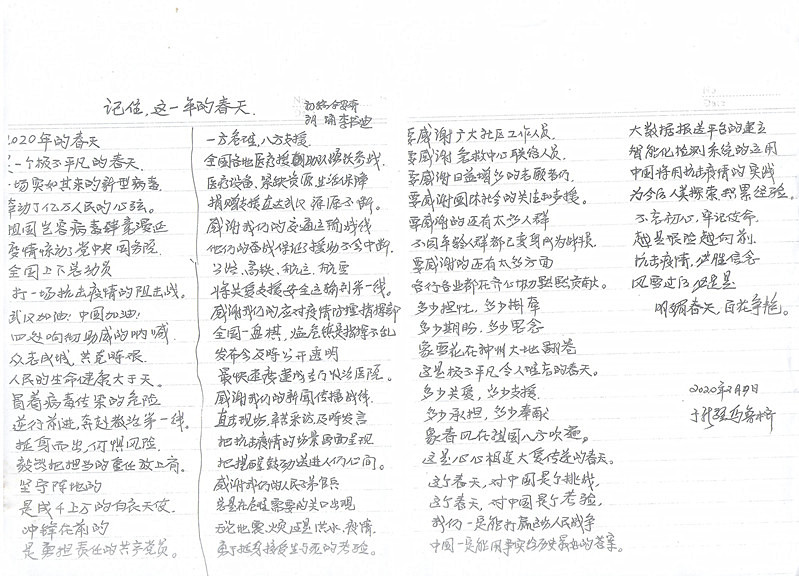 记住,这一年的春天.
2020年的春天
一个极不平凡的春天.
一场突如其来的新型病毒
牵动了亿万人民的心弦.
祖国岂容病毒肆意漫延
疫情惊动了党中央国务院.
全国上下总动员
打一场抗击疫情的阻击战.
武汉加油!中国加油!
四处响彻助威的呐喊
众志成城,共克时艰.
人民的生命健康大于天。
冒着病毒传染的危险
逆行前进,奔赴救治第一线。
挺身而出,何惧风险.
毅然把担当的重任放上肩。
坚守阵地的
是成千上万的白衣天使.
冲锋在前的
是勇担责任的共产党员。
一方危难,八方支援.
全国各地医疗援鄂助队增次参战.
医疗设备、紧缺资源生活保障
捐赠支援直达武汉 源源不断。
感谢我们的交通运输战线
他们的奋战保证了援助不会中断.
公路、高铁、航运、航空
将关爱支援安全运输到第一线。
感谢我们的应对疫情防控指挥部
全国一盘棋,临危统是指挥不乱
发布会及时公开透明
最快速度建成专门收治医院。
感谢我们的新闻传播战线
直击现场,辛苦采访及时发言
把抗击疫情的场景画面呈现
把提醒鼓劲送进人们心间。
感谢我们的人民子弟兵
总是在危难需要的关口出现
无论地震、火灾还是洪水、疫情.
勇于挺身接受生与死的考验。
要感谢广大社区工作人员.
要感谢急救中心联络人员.
要感谢日益增多的志愿者们.
要感谢国际社会的关注和支援。
要感谢的还有太多人群
不同年龄人群都已变身同为战狼.
要感谢的还有太多方面
各行各业都在齐心协力默默贡献。
多少担忧,多少掛牵
多少期盼,多少思念
象雪花在神州大地翻卷
这是极不平凡令人难忘的春天。
多少关爱,多少支援.
多少承担,多少奉献
象春风在祖国八方吹遍。
这是心心相连大爱传递的春天。
这个春天,对中国是个挑战,
这个春天,对中国是个考验,
我们一定能打赢这场人民战争
中国一定能用事实给历史最好的答案。
大数据报送平台的建立
智能化检测系统的应用
中国将用抗击疫情的实践
为全人类探索、积累经验.
不忘初心,牢记使命.
越是艰险越向前.
抗击疫情,必胜信念
风雪过后必定是
明媚春天,百花争艳。
2020年2月9日